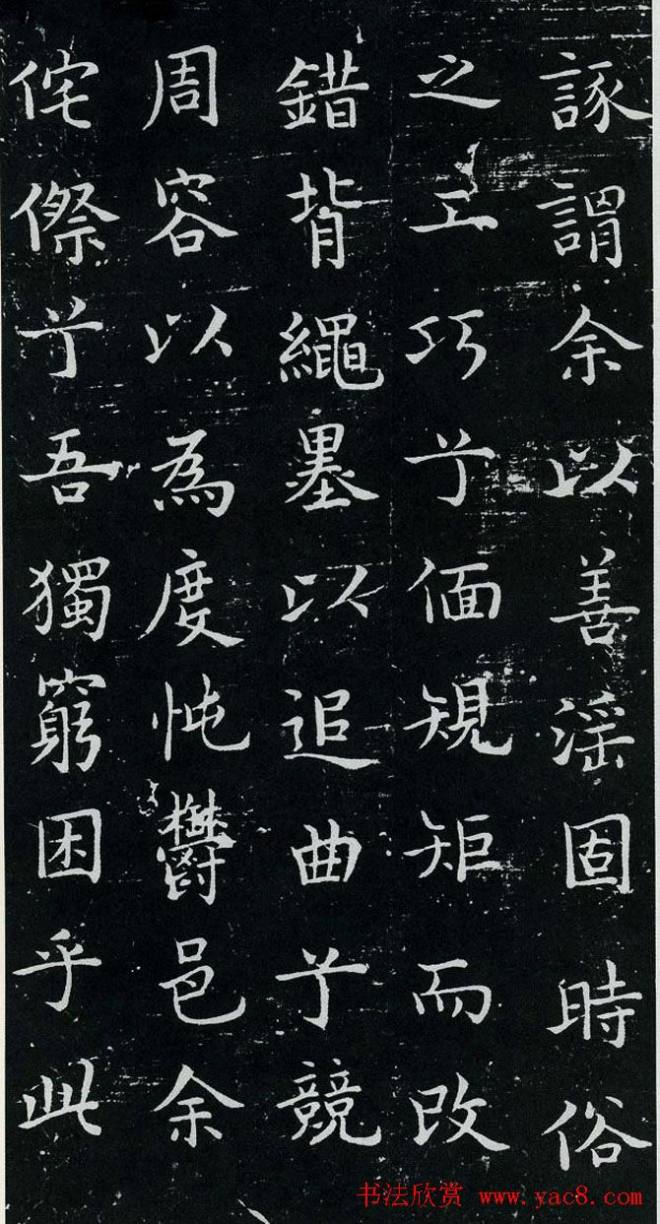 諑謂余以善淫固時俗
之工巧兮偭規矩而改
錯背繩墨以追曲兮競
周容以為度忳鬱邑余
侘傺兮吾獨窮困乎此
书法欣赏 www.yac8.com